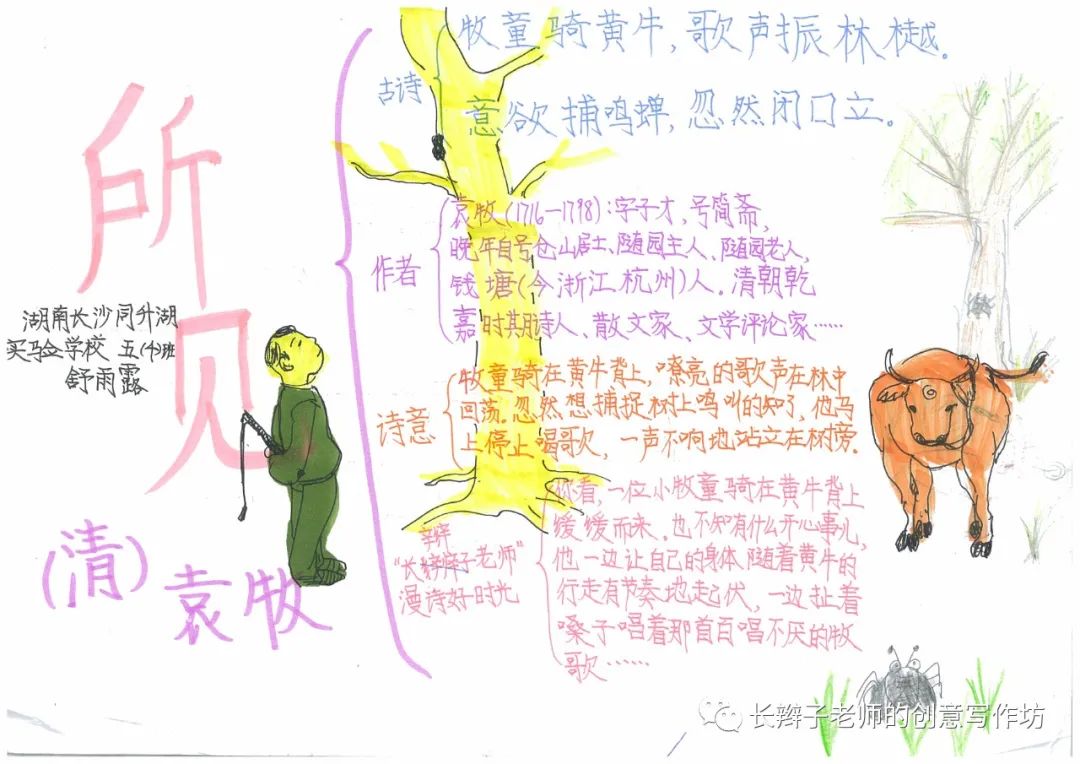 所见
湖南长沙同升湖
实验学校 五(4)班
舒雨露
(清)
袁牧
古诗
牧童骑黄牛，歌声振林樾。
意欲捕鸣蝉，忽然闭口立。
作者
袁牧(1716—1798)：字子才，号简斋，
晚年自号仓山居士、随园主人、随园老人，
钱塘(今浙江杭州)人。清朝乾
嘉时期诗人、散文家、文学评论家……
诗意
牧童骑在黄牛背上，嘹亮的歌声在林中
回荡。忽然想捕捉树上鸣叫的知了，他马
上停止唱歌，一声不响地站立在树旁。
“长辫子老师”
漫诗好时光
你看，一位小牧童骑在黄牛背上
缓缓而来。也不知有什么开心事儿，
他一边让自己的身体随着黄牛的
行走有节奏地起伏，一边扯着
嗓子唱着那首百唱不厌的牧
歌……
长辫子老师的创意写作坊